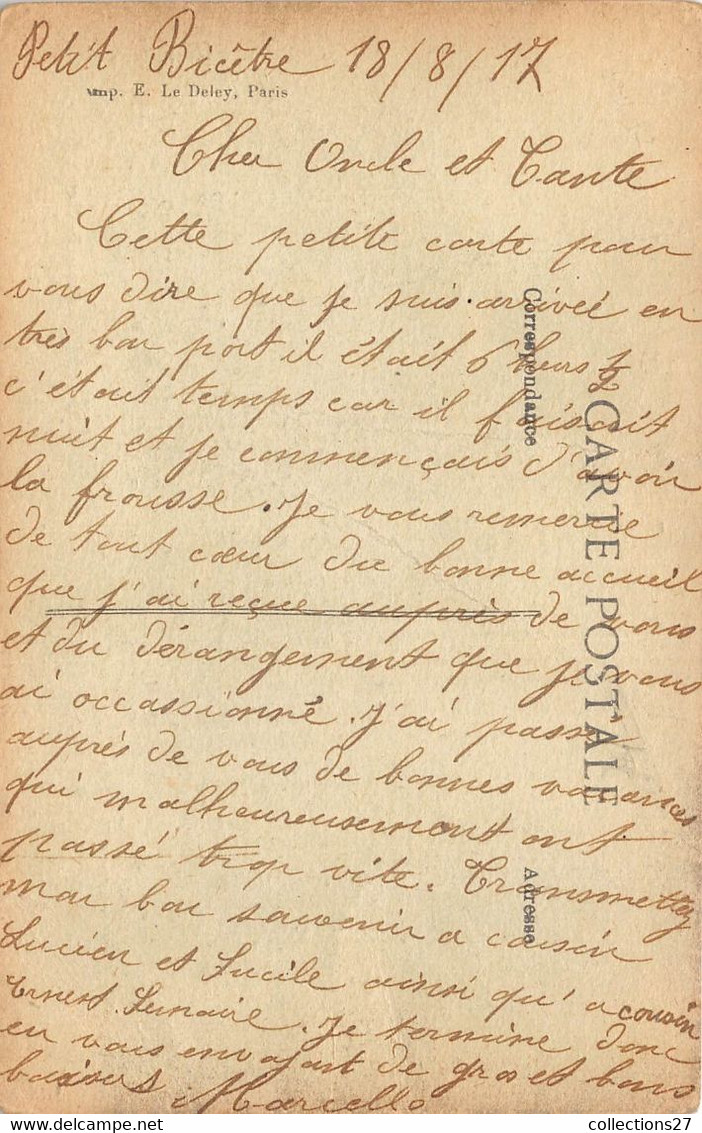 Petit Bicêtre 18/8/17
Imp. E. Le Deley, Paris
Cher Oncle et Tante
Cette petite carte pour
vous dire que je suis arrivée en
très bon port il était 6 heurs ½
c'était temps car il faisait
nuit et je commençais d'avoir
la frousse. Je vous remercie
de tout cœur du bonne accueil
que j'ai reçue auprès de vous
et du dérangement que je vous
ai occassionné. J'ai passé
auprès de vous de bonnes vacances
qui malheureusement ont
passé trop vite. Transmettez
mon bon souvenir a cousin
Lucien et Lucile ainsi qu'a cousin
Ernest Lemaire. Je termine donc
en vous envoyant de gros et bons
baisers Marcelle
Correspondance
CARTE POSTALE
Adresse
collections27